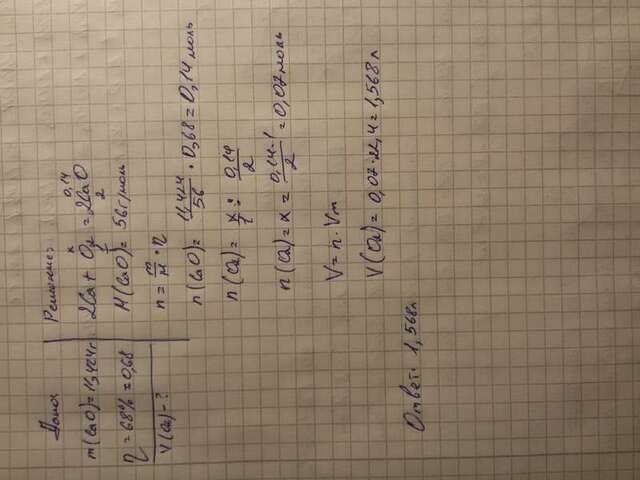 Дано:
m(CaO)=11,424г
η=68%=0,68
V(O₂)-?
Решение:
0,14
2Ca+O₂=2CaO
x
1 2
M(CaO)=56г/моль
n=m/M·η
n(CaO)=11,424/56·0,68=0,14моль
n(O₂)=x/1:0,14/2
n(O₂)=x=0,14·1/2=0,07моль
V=n·Vm
V(O₂)=0,07·22,4=1,568л
Ответ: 1,568л